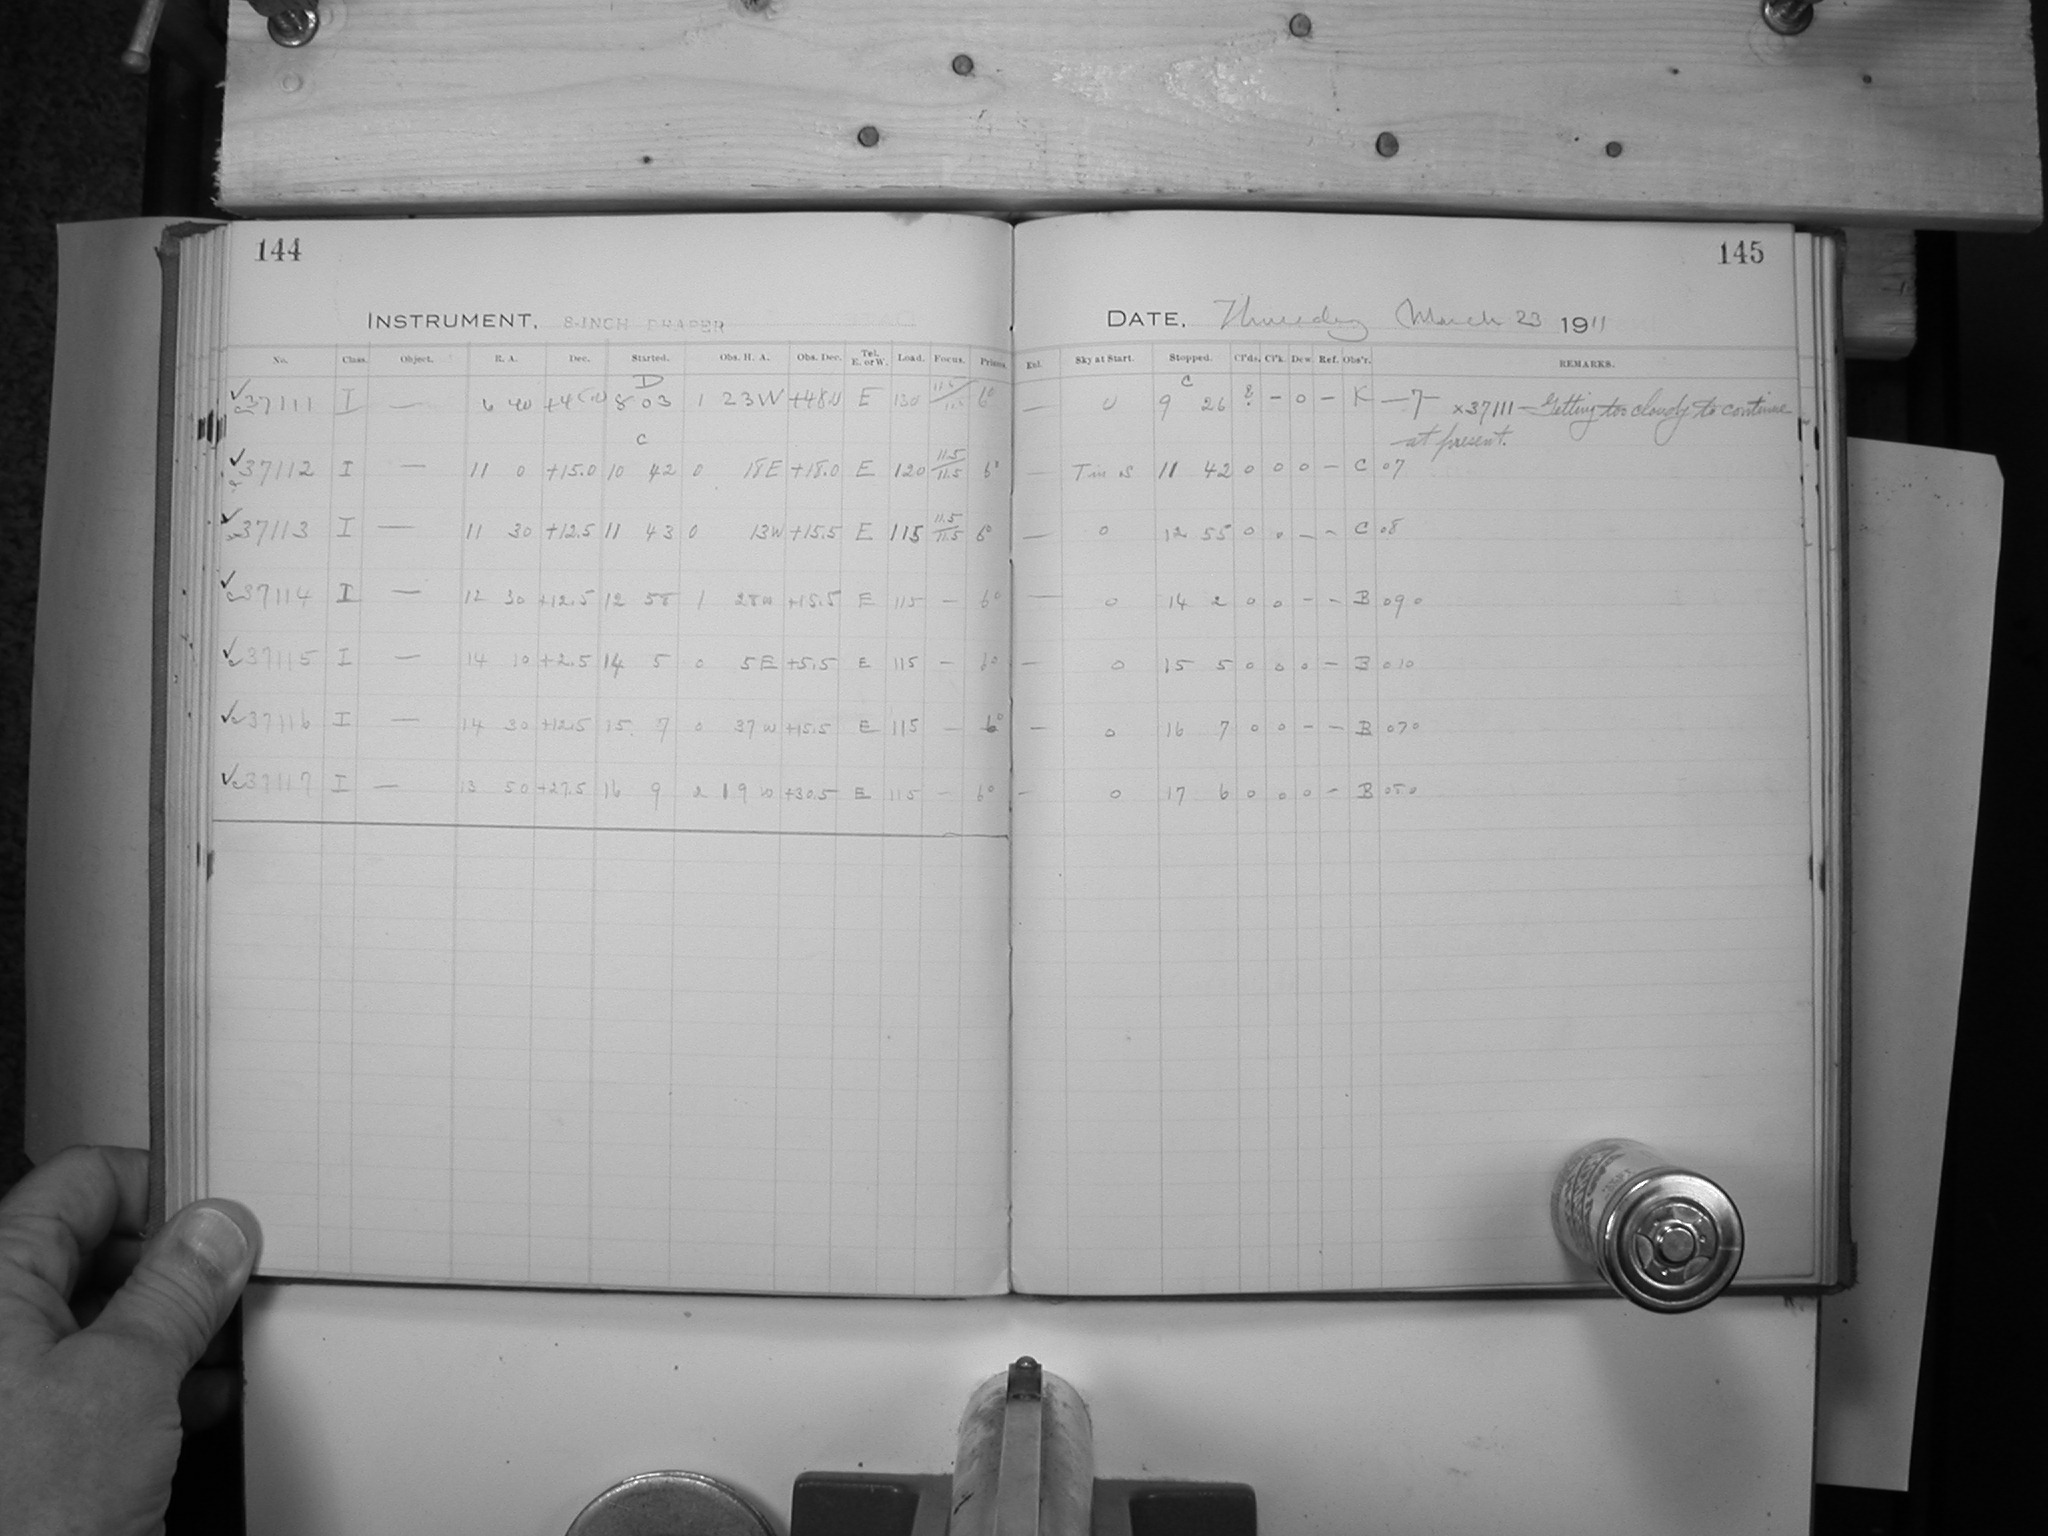 144
145
INSTRUMENT, 8-INCH DRAPER
DATE, Thursday March 23 1911
No. Class. Object. R. A. Dec. Started. Obs. H. A. Obs. Dec. Tel. E. or W. Load. Focus. Prisms.
Exl. Sky at Start. Stopped. Cl'ds. Cl'k. Dew. Ref. Obs'r. REMARKS.
D C
37111 I — 6 40 8 03 1 23W E 130 6° — 0 9 26 - 0 - K —7— ×37111 — Getting too cloudy to continue
at present.
C
37112 I — 11 0 +15.0 10 42 0 18E +18.0 E 120 11.5/11.5 6° — 11 42 0 0 0 - C 07
37113 I — 11 30 +12.5 11 43 0 13W +15.5 E 115 11.5/11.5 6° — 0 12 55 0 0 - - C 08
37114 I — 12 30 +12.5 12 58 1 28W +15.5 E 115 - 6° — 0 14 2 0 0 - - B 090
37115 I — 14 10 +2.5 14 5 0 5E +5.5 E 115 - 6° — 0 15 5 0 0 0 - B 010
37116 I — 14 30 +12.5 15 7 0 37W +15.5 E 115 - 6° — 0 16 7 0 0 - - B 070
37117 I — 13 50 +27.5 16 9 2 19W +30.5 E 115 - 6° - 0 17 6 0 0 0 - B 050